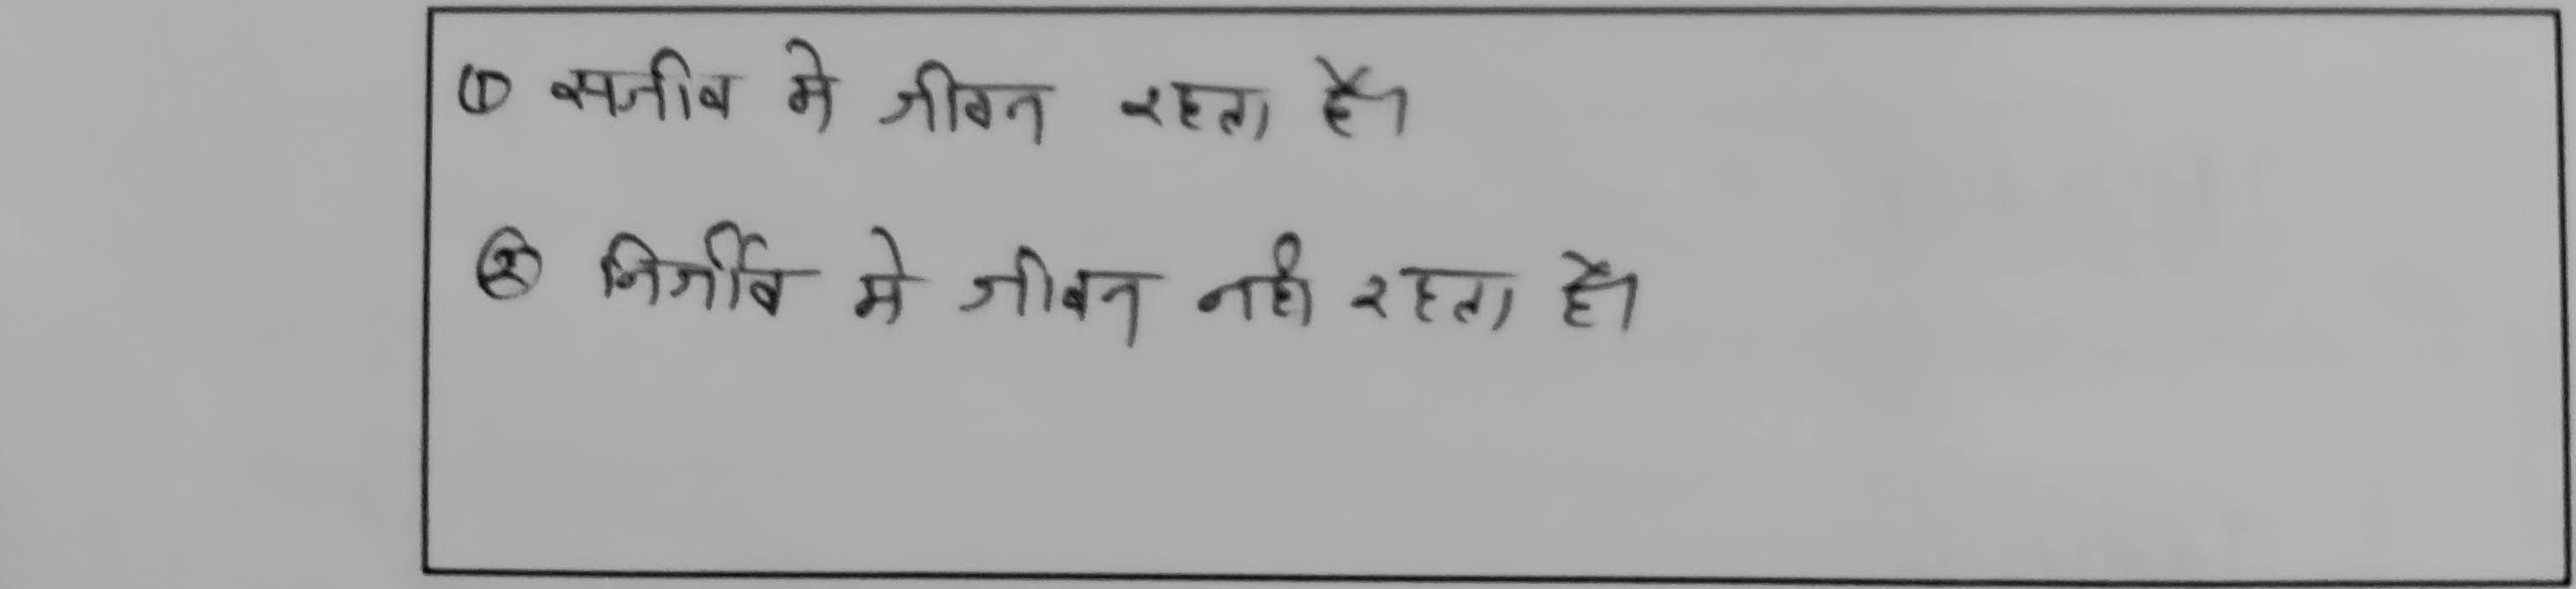 ① सजीव मे जीवन रहता है।
② निर्जीव मे जीवन नही रहता है।